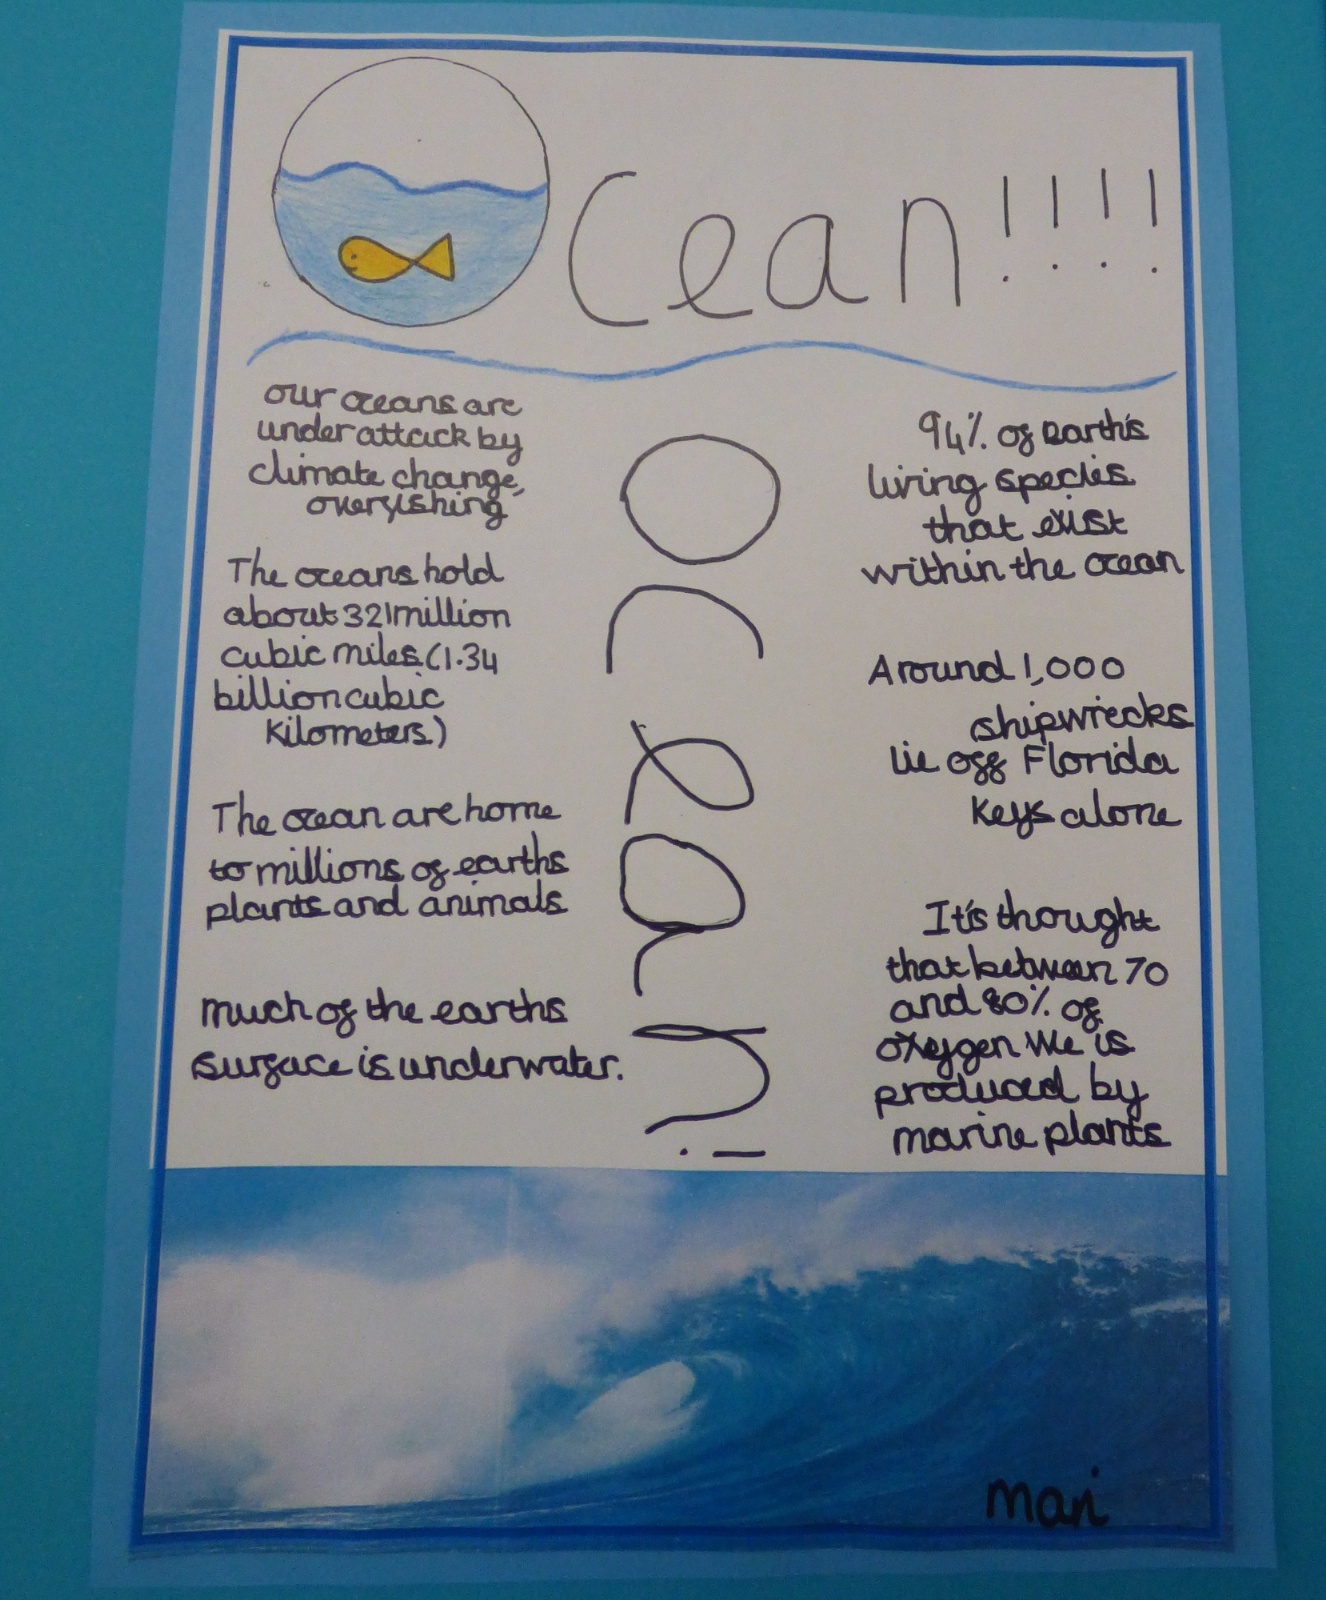 Ocean!!!!
our oceans are
under attack by
climate change,
overfishing
The oceans hold
about 321 million
cubic miles (1.34
billion cubic
kilometers)
The ocean are home
to millions of earths
plants and animals
much of the earths
surface is underwater.
ocean!
94% of Earth's
living species
that exist
within the ocean
Around 1,000
shipwrecks
lie off Florida
keys alone
It's thought
that between 70
and 80% of
oxygen we is
produced by
marine plants
mari